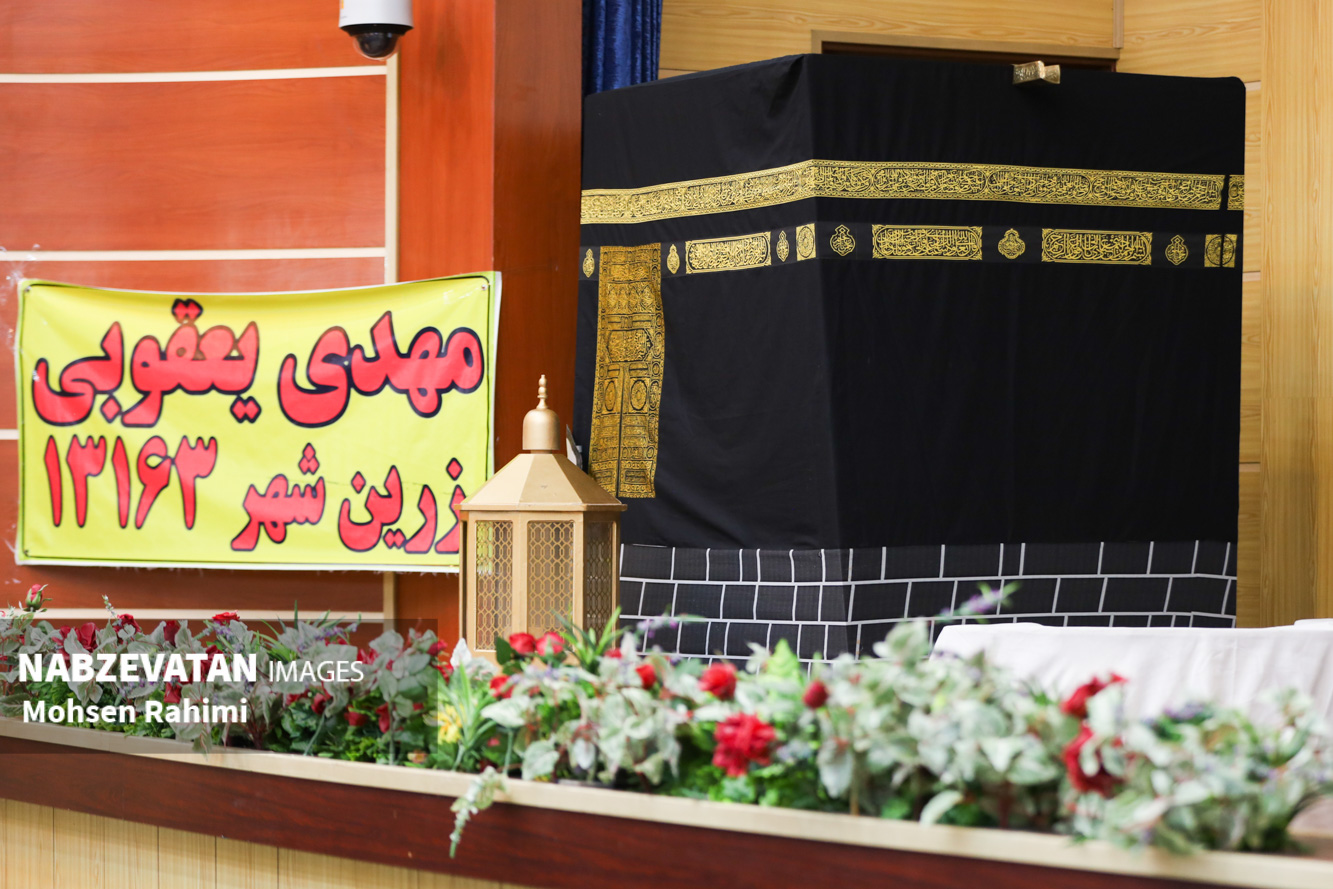 مهدی یعقوبی
زرین شهر ۱۳۱۶۳
NABZEVATAN IMAGES
Mohsen Rahimi